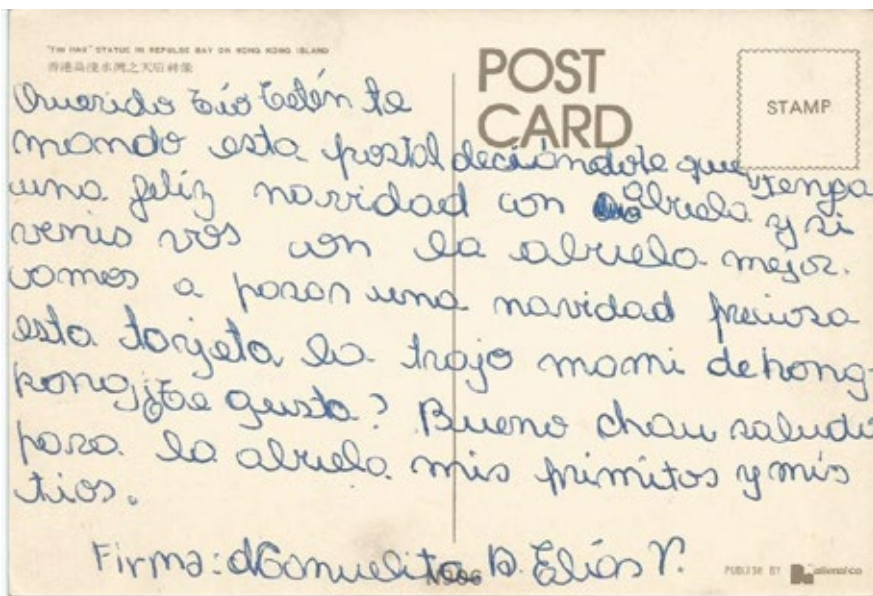 "TIN HAU" STATUE IN REPULSE BAY ON HONG KONG ISLAND
香港島淺水灣之天后神像
POST
CARD
STAMP
Querido tío Tetén te
mando esta postal deciéndote que tenga
una feliz navidad con abuela y si
venis vos con la abuela mejor.
vamos a pasar una navidad preciosa
esta tarjeta la trajo mami de hong-
kong ¿te gusta? Bueno chau saludo
para la abuela mis primitos y mis
tios.
Firma: Manuelita B. Elías V.
PUBLISH BY